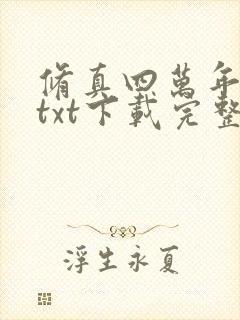 脩真四萬年
txt下載完整
浮生永夏